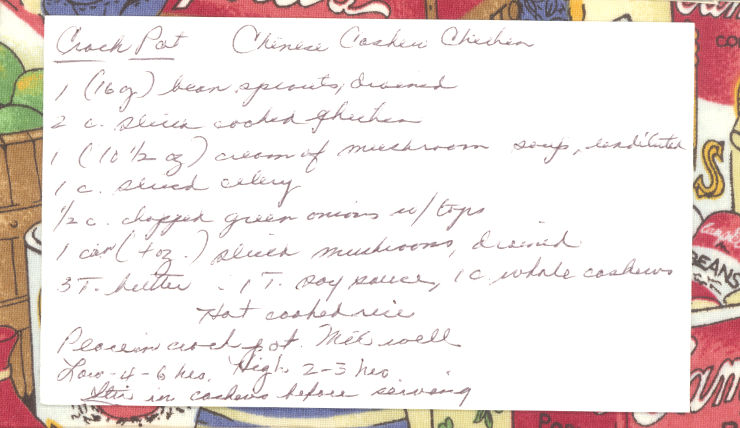 Crock Pot Chinese Cashew Chicken
1 (16 oz) bean sprouts, drained
2 c. sliced cooked chicken
1 (10 1/2 oz) cream of mushroom soup, undiluted
1 c. sliced celery
1/2 c. chopped green onions w/ tops
1 can (4 oz.) sliced mushrooms, drained
3 T. butter 1 T. soy sauce, 1 c. whole cashews
Hot cooked rice
Place in crock pot. Mix well
Low - 4 - 6 hrs, High 2-3 hrs
Stir in cashews before serving
CO
S
Campbell's
BEANS